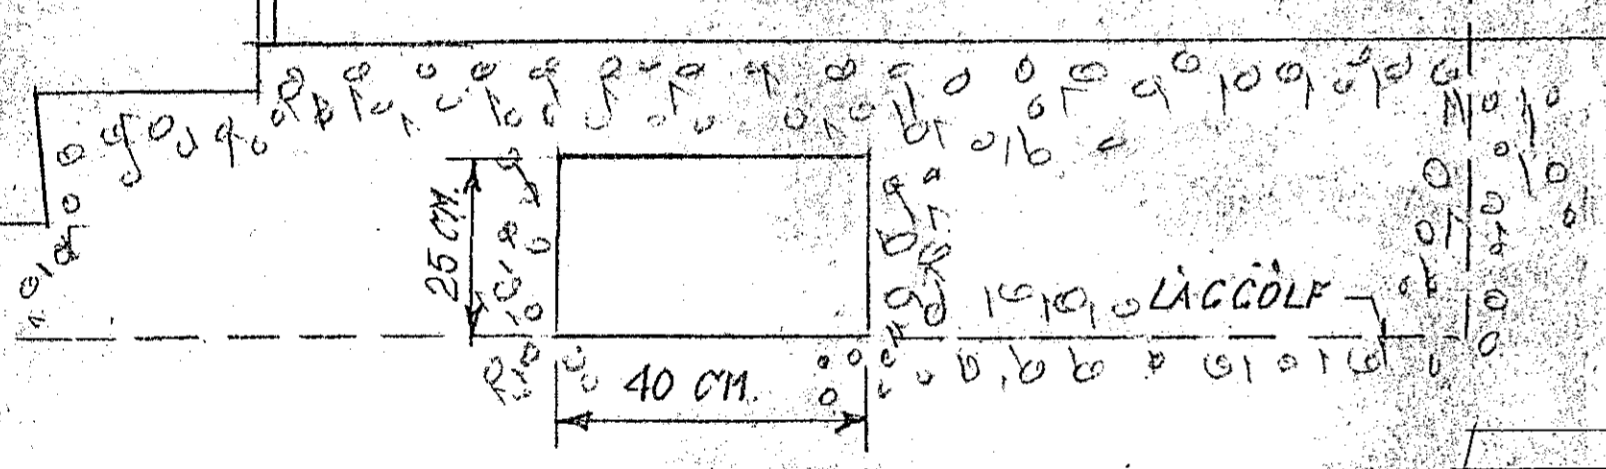 25 CM.
LACCOLF
40 CM.